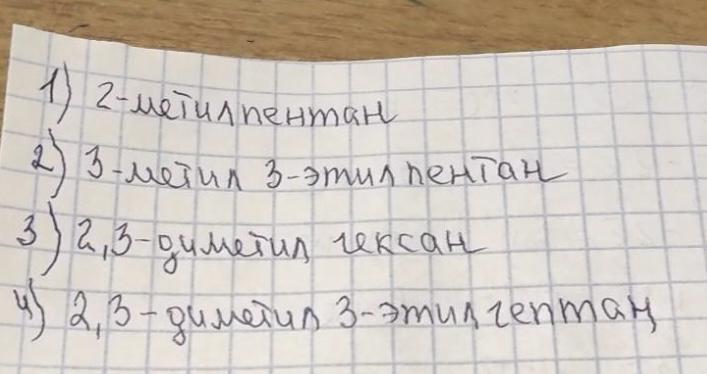 1) 2-метилпентан
2) 3-метил 3-этилпентан
3) 2,3-диметил гексан
4) 2,3-диметил 3-этилгептан